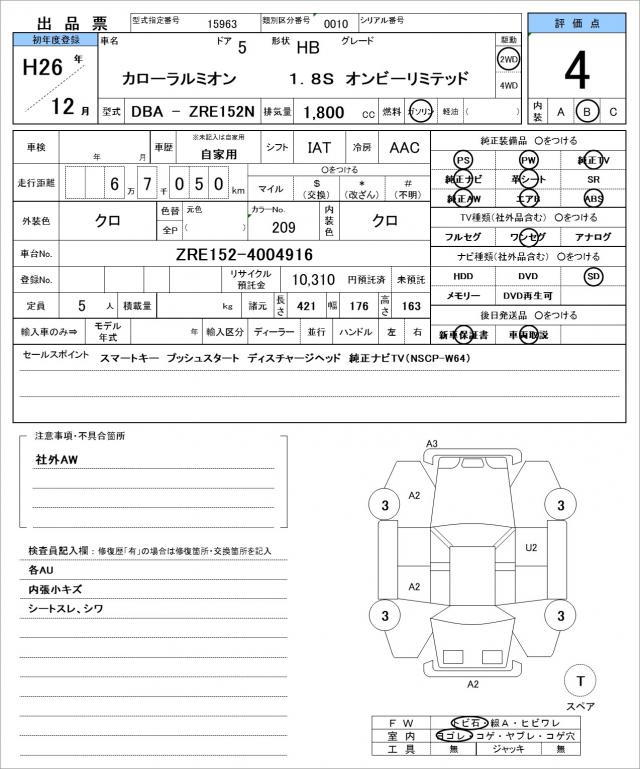 出品票 型式指定番号 15963 類別区分番号 0010 シリアル番号 評価点
初年度登録 車名 ドア 5 形状 HB グレード 駆動
H26 年 2WD 4
カローラルミオン 1.8S オンビーリミテッド 4WD
12 月 型式 DBA - ZRE152N 排気量 1,800 cc 燃料 ガソリン・軽油 ( ) 内装 A B C
車検 年 月 車歴 ※未記入は自家用 自家用 シフト IAT 冷房 AAC 純正装備品 〇をつける
PS PW 純正TV
走行距離 6 万 7 千 0 5 0 km 〇をつける
マイル $ (交換) * (改ざん) # (不明) 純正ナビ 革シート SR
純正AW エアB ABS
外装色 クロ 色替 元色 全P ( ) カラーNo. 209 内装色 クロ TV種類(社外品含む) 〇をつける
フルセグ ワンセグ アナログ
車台No. ZRE152-4004916 ナビ種類(社外品含む) 〇をつける
登録No. リサイクル預託金 10,310 円預託済 未預託 HDD DVD SD
定員 5 人 積載量 kg 諸元 長さ 421 幅 176 高さ 163 メモリー DVD再生可
後日発送品 〇をつける
輸入車のみ⇒ モデル年式 年 輸入区分 ディーラー 並行 ハンドル 左 右 新車保証書 車両取説
セールスポイント スマートキー プッシュスタート ディスチャージヘッド 純正ナビTV(NSCP-W64)
注意事項・不具合箇所
社外AW
検査員記入欄 : 修復歴「有」の場合は修復箇所・交換箇所を記入
各AU
内張小キズ
シートスレ、シワ
A3
A2
3 3
U2
A2
3 3
A2
T
スペア
FW トビ石・線A・ヒビワレ
室内 ヨゴレ・コゲ・ヤブレ・コゲ穴
工具 無 ジャッキ 無